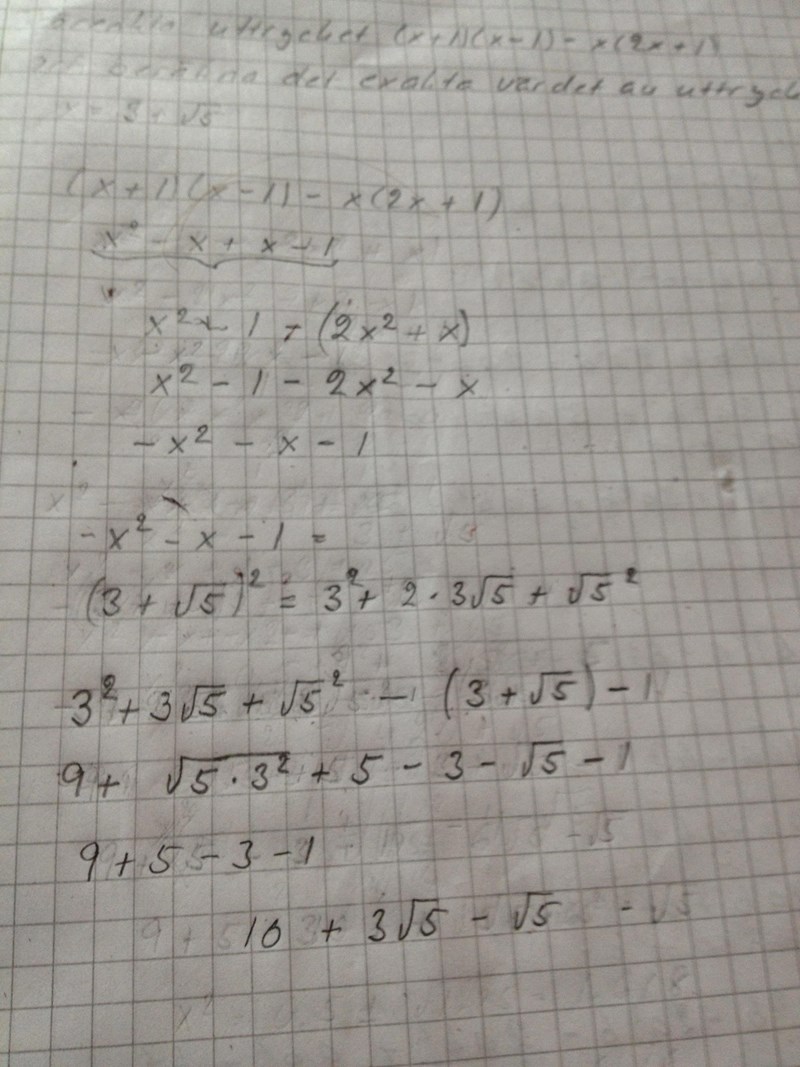 uttrycket (x+1)(x-1) - x(2x+1)
det exakta värdet av
x = 3 + √5
(x+1)(x-1) - x(2x+1)
x² - x + x - 1
x² - 1 - (2x² + x)
x² - 1 - 2x² - x
-x² - x - 1
-x² - x - 1 =
(3 + √5)² = 3² + 2·3√5 + √5²
3² + 3√5 + √5² - (3 + √5) - 1
9 + √5·3² + 5 - 3 - √5 - 1
9 + 5 - 3 - 1
10 + 3√5 - √5